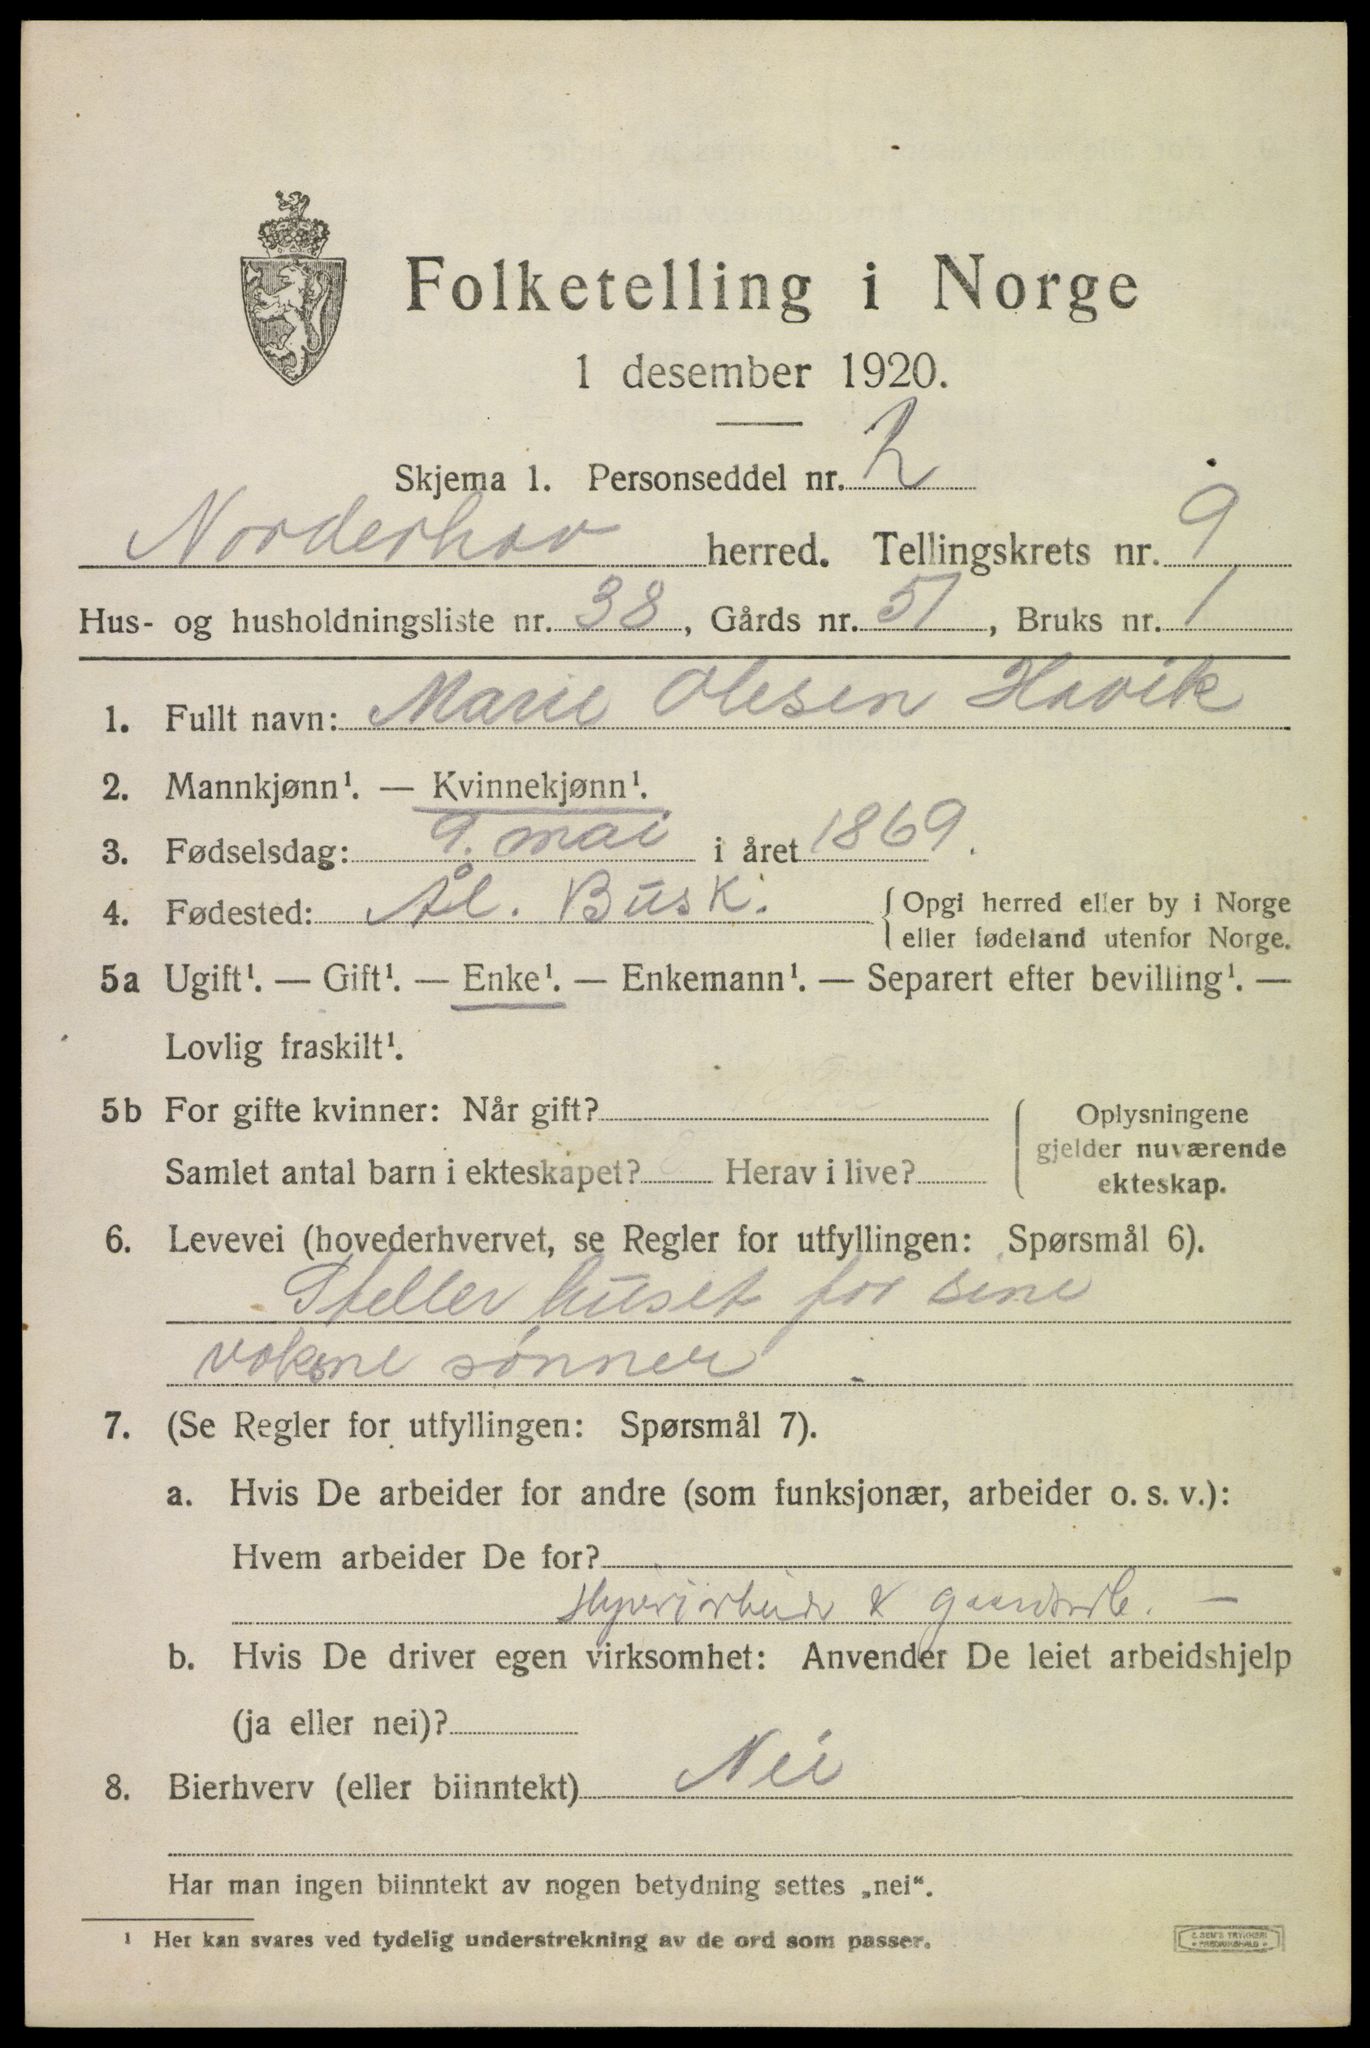 Folketelling i Norge
1 desember 1920.
Skjema 1. Personseddel nr. 2
Norderhov herred. Tellingskrets nr. 9
Hus- og husholdningsliste nr. 38, Gårds nr. 51, Bruks nr. 1
1. Fullt navn: Marie Olesen Havik
2. Mannkjønn¹. — Kvinnekjønn¹.
3. Fødselsdag: 9. mai i året 1869.
4. Fødested: Ål. Busk. { Opgi herred eller by i Norge
eller fødeland utenfor Norge.
5a Ugift¹. — Gift¹. — Enke¹. — Enkemann¹. — Separert efter bevilling¹. —
Lovlig fraskilt¹.
5b For gifte kvinner: Når gift?
Samlet antal barn i ekteskapet? Herav i live?
Oplysningene
gjelder nuværende
ekteskap.
6. Levevei (hovederhvervet, se Regler for utfyllingen: Spørsmål 6).
Steller huset for sine
voksne sønner
7. (Se Regler for utfyllingen: Spørsmål 7).
a. Hvis De arbeider for andre (som funksjonær, arbeider o. s. v.):
Hvem arbeider De for?
&
b. Hvis De driver egen virksomhet: Anvender De leiet arbeidshjelp
(ja eller nei)?
8. Bierhverv (eller biinntekt) Nei
Har man ingen biinntekt av nogen betydning settes „nei“.
¹ Her kan svares ved tydelig understrekning av de ord som passer.